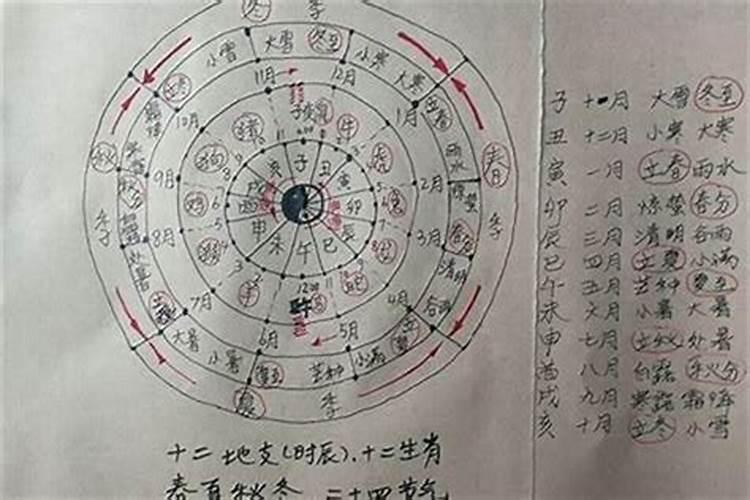 冬 季
小雪 大雪 冬至 小寒 大寒
立冬 立春
11月 12月
10月 1月
子 丑 寅 卯 辰 巳 午 未 申 酉 戌 亥
鼠 牛 虎 兔
猪 狗 鸡 猴 羊
秋 季
春 季
雨水 惊蛰 春分 清明 谷雨
9月 2月
8月 3月
7月 4月
6月 5月
处暑
大暑 小暑 夏至 芒种 小满
夏 季
子 十一月 大雪 冬至
丑 十二月 小寒 大寒
寅 一月 立春 雨水
卯 二月 惊蛰 春分
辰 三月 清明 谷雨
巳 四月 立夏 小满
午 五月 芒种 夏至
未 六月 小暑 大暑
申 七月 立秋 处暑
酉 八月 白露 秋分
戌 九月 寒露 霜降
亥 十月 立冬 小雪
十二地支(时辰)、十二生肖
春夏秋冬 二十四节气